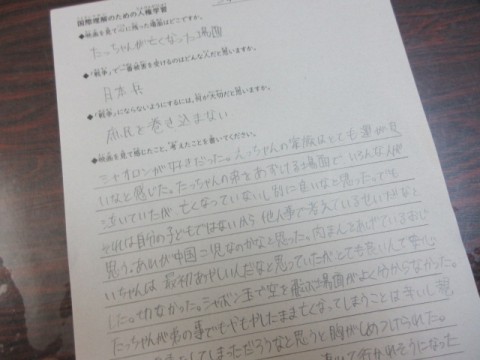 国際理解のための人権学習
●映画を見て心に残った場面はどこですか。
たっちゃんが亡くなった場面
●「戦争」で一番被害を受けるのはどんな人だと思いますか。
日本兵
●「戦争」にならないようにするには、何が大切だと思いますか。
庶民を巻き込まない
●映画を見て感じたこと、考えたことを書いてください。
シャオロンが好きだった。たっちゃんの家族はとても運が良
いなと感じた。たっちゃんの弟をあずける場面でいろんな人が
泣いていたが、亡くなっていないし別に良いなと思った。でも
それは自分の子どもではないから他人事で考えているせいだなと
思う。あれが中国 なのかなと思った。肉まんをあげているおじ
いちゃんは最初あやしい人だなと思っていたがとても良い人で安心
した。切なかった。シャボン玉で空を飛ぶ場面がよく分からなかった。
たっちゃんが弟の事でもやもやしたまま亡くなってしまうことは辛いし
してしまっただろうなと思うと胸がしめつけられた。
行かれそうになった